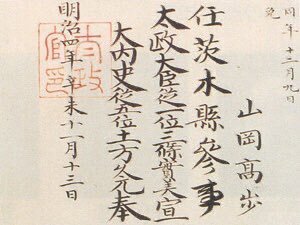 同年十二月九日
免
山岡高歩
任茨木縣参事
太政大臣従一位三條實美宣
大内史従五位土方久元奉
明治四年辛未十一月十三日
太政官印